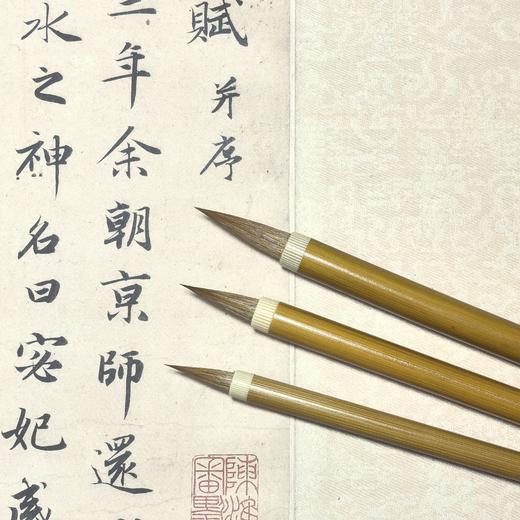 賦 并序
年余朝亰師還
水之神名曰宓妃感